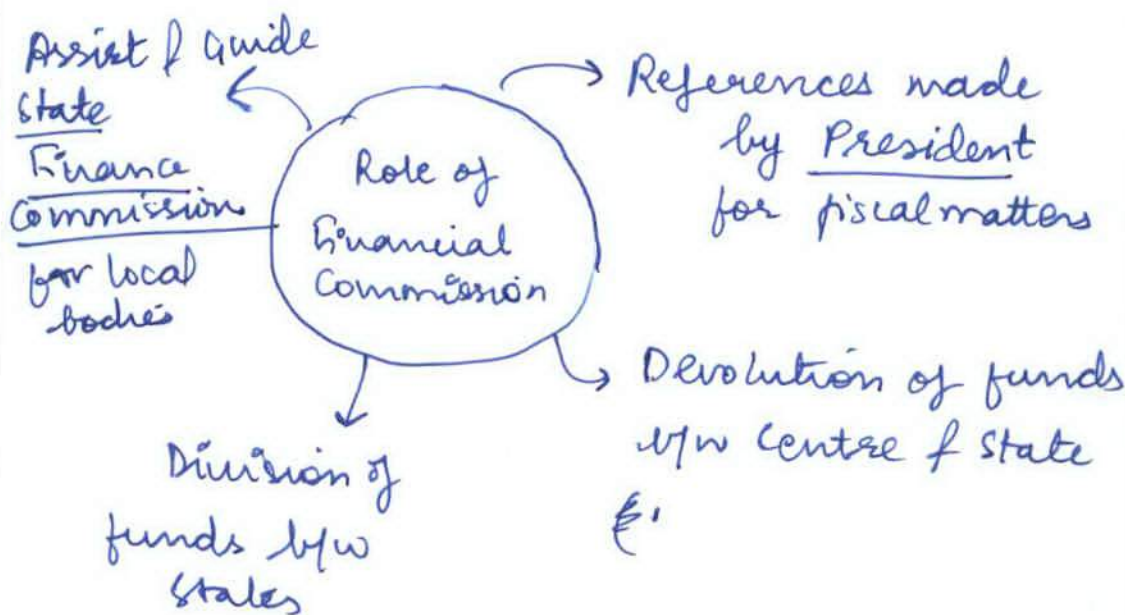 Assist & Guide
State
Finance
Commission
for local
bodies
Role of
Financial
Commission
References made
by President
for fiscal matters
Devolution of funds
b/w Centre & State
Division of
funds b/w
States